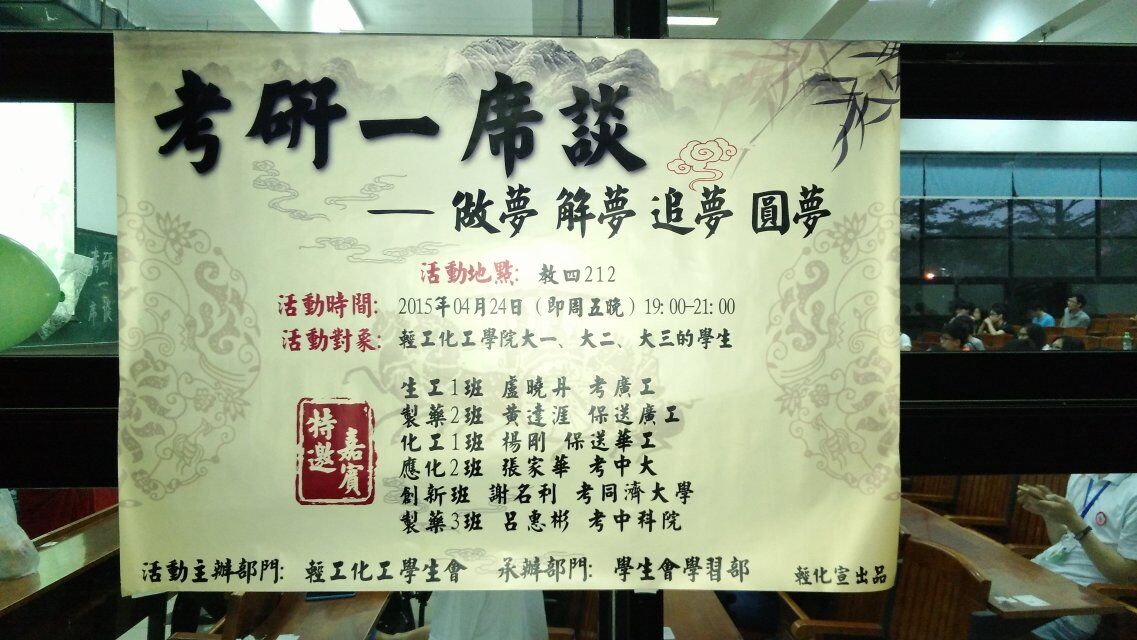 考研一席談
— 做夢 解夢 追夢 圓夢
活動地點: 教四212
活動時間: 2015年04月24日（即周五晚）19:00-21:00
活動對象: 輕工化工學院大一、大二、大三的學生
特邀嘉賓
生工1班 盧曉丹 考廣工
製藥2班 黃達涯 保送廣工
化工1班 楊剛 保送華工
應化2班 張家華 考中大
創新班 謝名利 考同濟大學
製藥3班 呂惠彬 考中科院
活動主辦部門: 輕工化工學生會 承辦部門: 學生會學習部
輕化宣出品